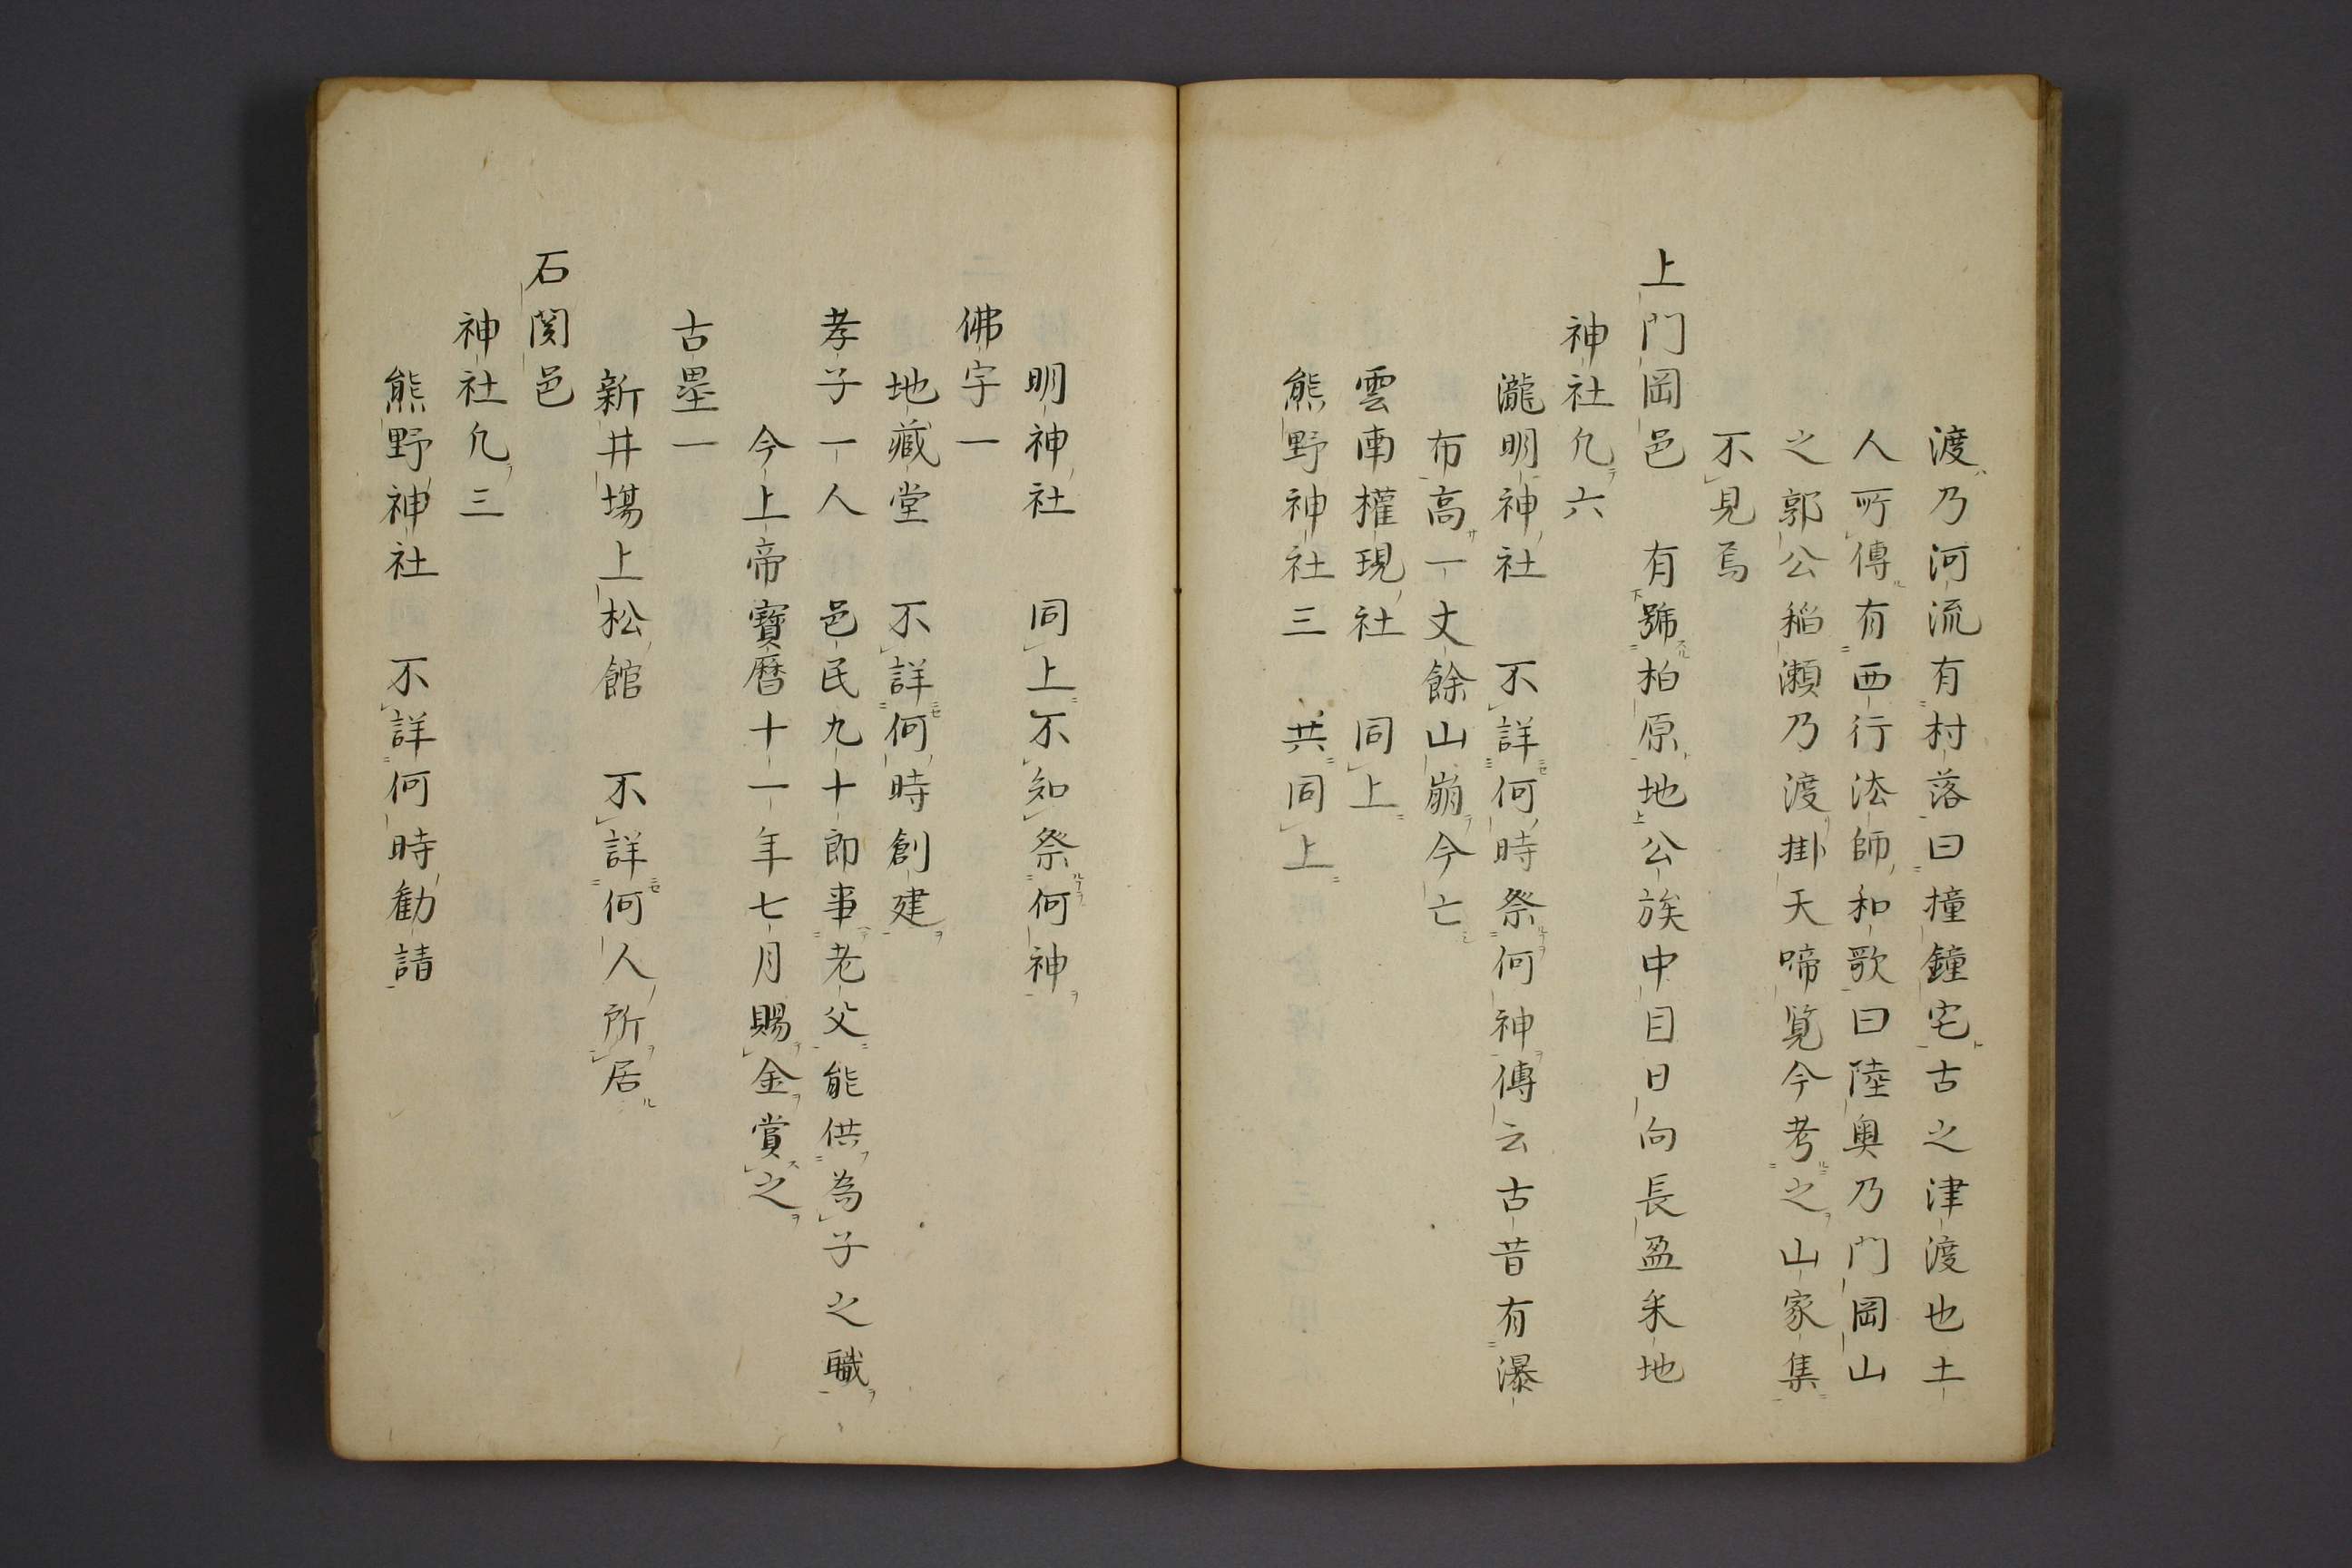 渡乃河流有村落曰撞鐘宅古之津渡也土
人所傳有西行法師和歌曰陸奧乃門岡山
之郭公稲瀬乃渡掛天啼覧今考之山家集
不見焉
上門岡邑　有號柏原地公族中目日向長盈采地
神社凢六
瀧明神社　不詳何時祭何神傳云古昔有瀑
布高一丈餘山崩今亡
雲南權現社　同上
熊野神社三　共同上
明神社　同上不知祭何神
佛宇一
地藏堂　不詳何時創建
孝子一人　邑民九十郎事老父能供為子之職
今上帝寶曆十一年七月賜金賞之
古壘一
新井塲上松館　不詳何人所居
石関邑
神社凢三
熊野神社　不詳何時勧請